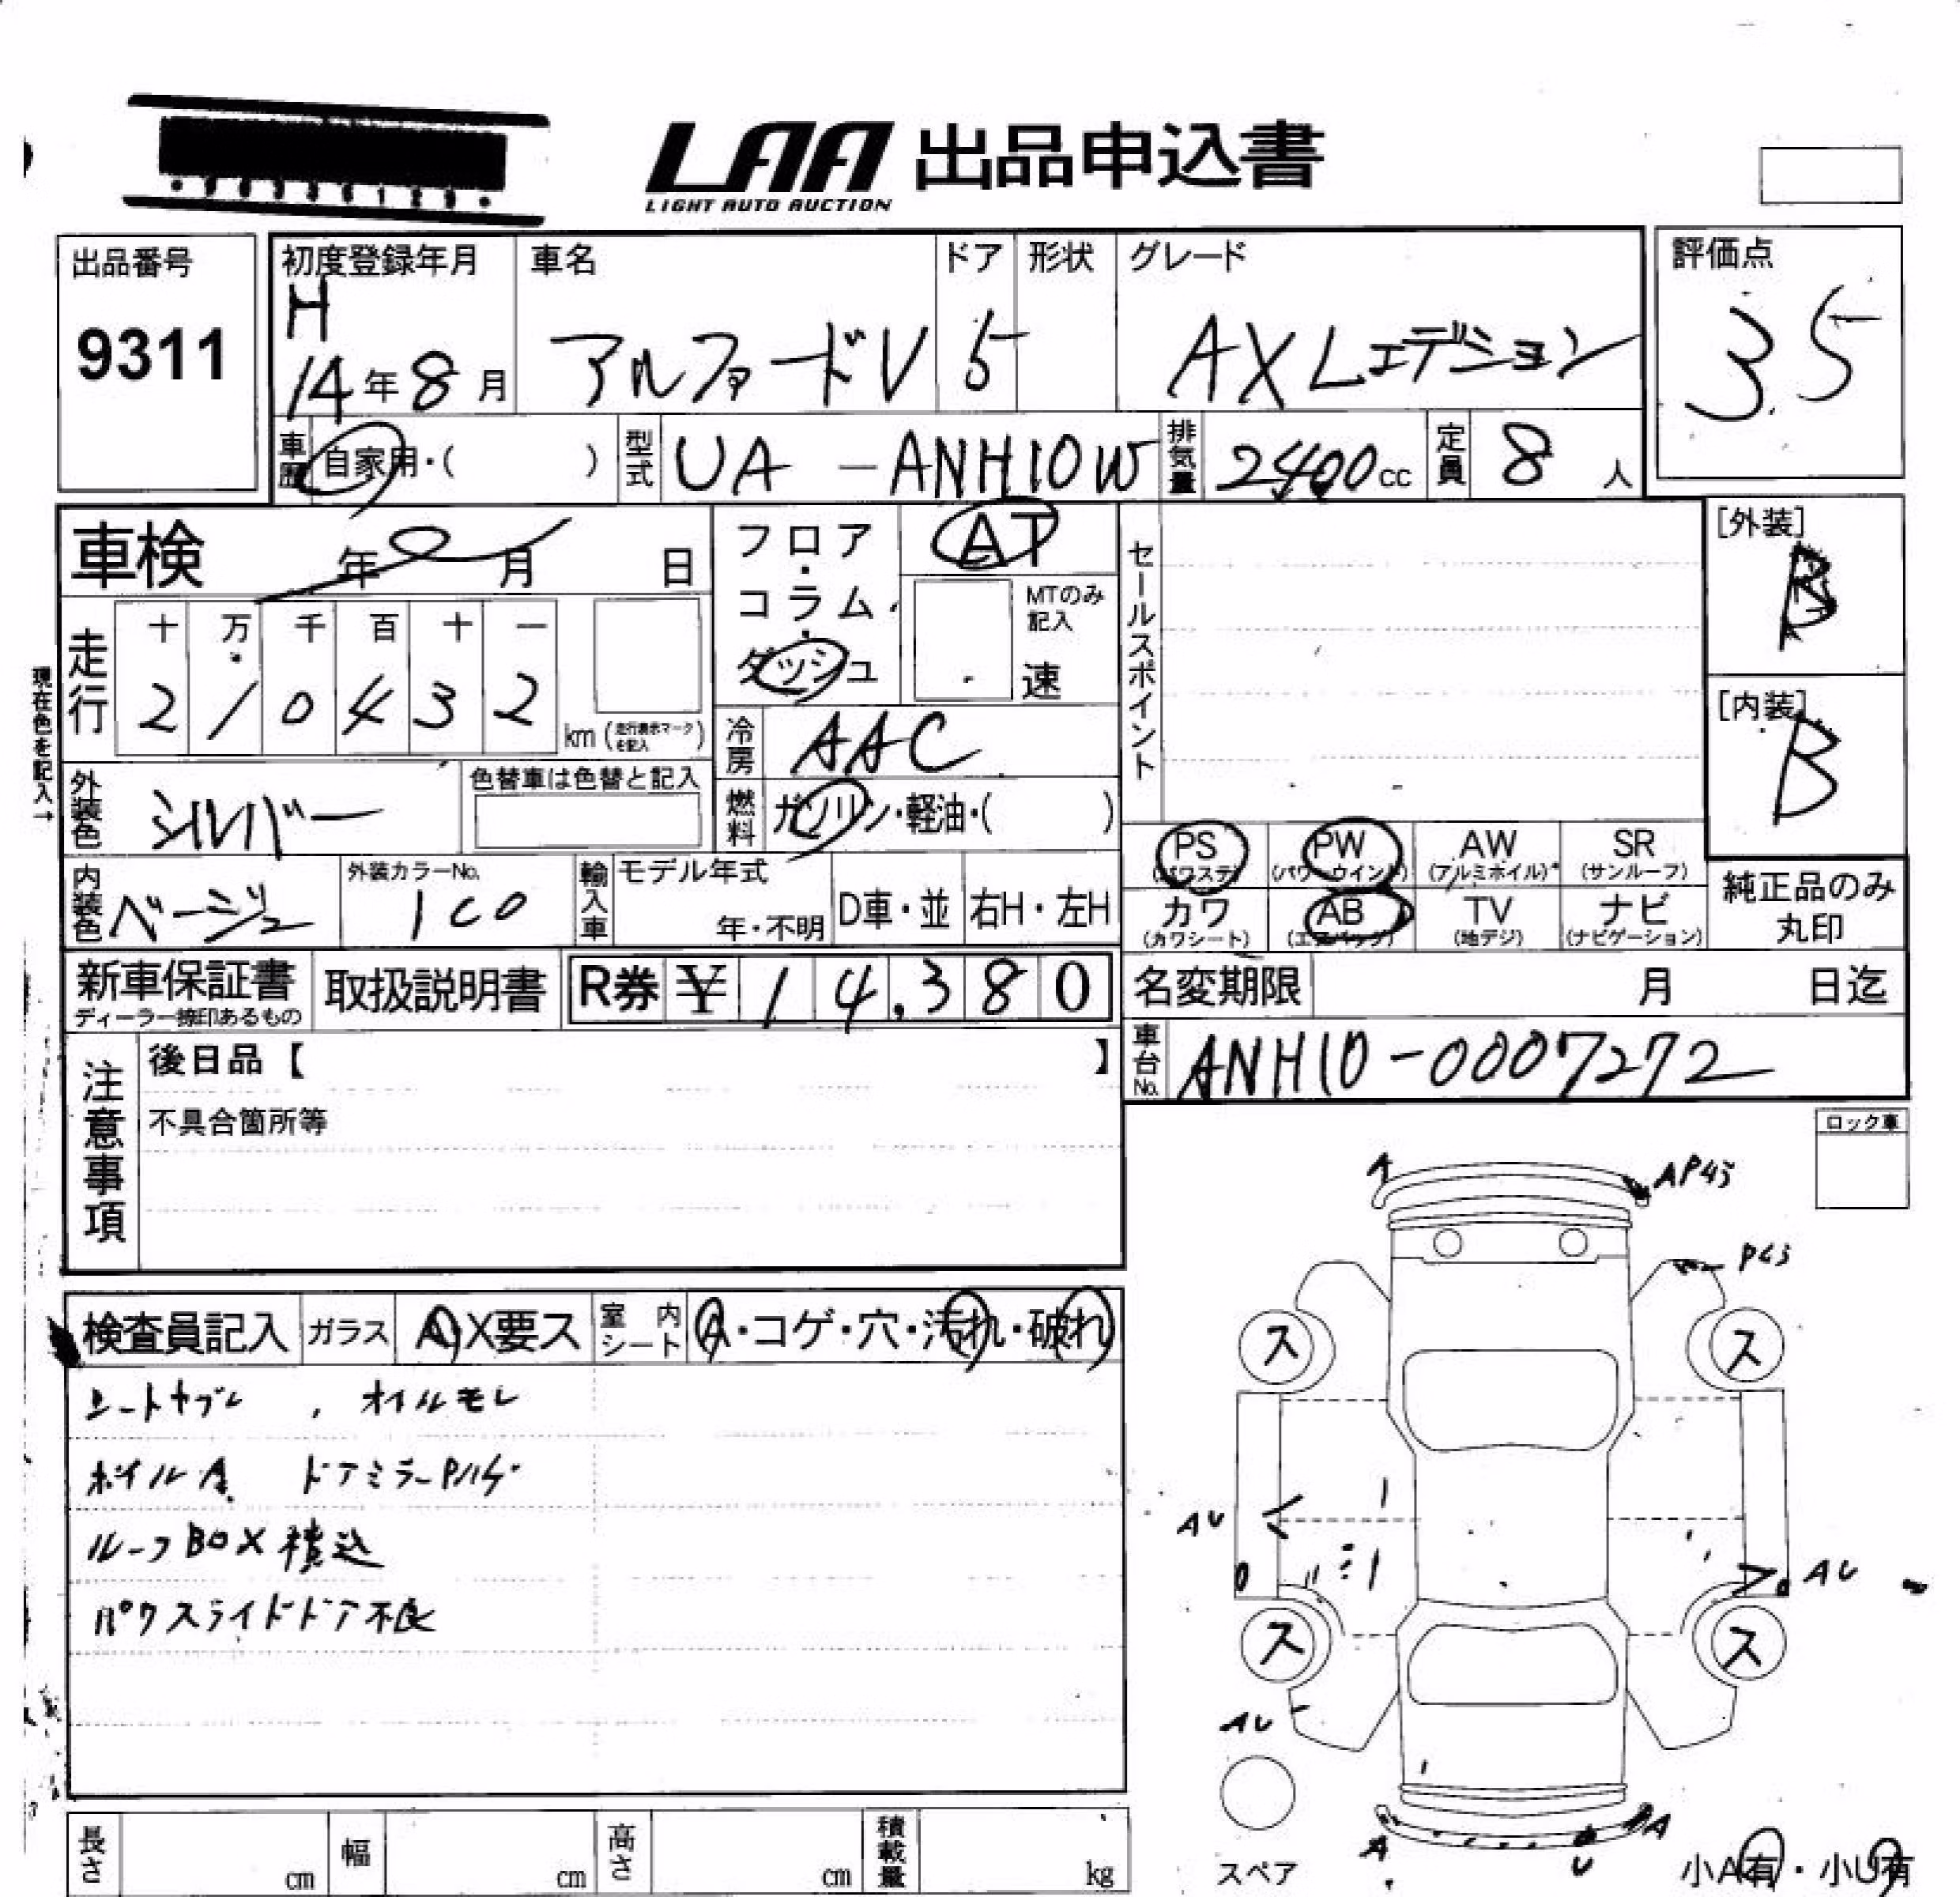 LAA 出品申込書
LIGHT AUTO AUCTION
出品番号
9311
初度登録年月
H
14年8月
車名
アルファードV
ドア
5
形状
グレード
AX Lエデション
評価点
3.5
車歴
自家用・( )
型式
UA - ANH10W
排気量
2400cc
定員
8人
車検
年 月 日
フロア・コラム・ダッシュ
AT
MTのみ記入
速
セールスポイント
[外装]
B
[内装]
B
現在色を記入→
走行
十 万 千 百 十 一
2 1 0 4 3 2
km (走行表示マークを記入)
冷房
AAC
外装色
シルバー
色替車は色替と記入
燃料
ガソリン・軽油・( )
内装色
ベージュ
外装カラーNo.
1C0
輸入車
モデル年式
年・不明
D車・並
右H・左H
PS
(パワステ)
PW
(パワーウインド)
AW
(アルミホイル)
SR
(サンルーフ)
カワ
(カワシート)
AB
(エアバッグ)
TV
(地デジ)
ナビ
(ナビゲーション)
純正品のみ
丸印
新車保証書
ディーラー捺印あるもの
取扱説明書
R券 ¥14,380
名変期限
月 日迄
車台No.
ANH10-0007272
注意事項
後日品【 】
不具合箇所等
ロック車
A
AP45
P43
検査員記入
ガラス
A X要ス
室内シート
A・コゲ・穴・汚れ・破れ
シートヤブレ , オイルモレ
ホイルA ドアミラーPハゲ
ルーフBOX積込
パワスライドドア不良
ス
ス
AU
AU
ス
ス
AU
A
U
A
スペア
小A有・小U有
長さ
cm
幅
cm
高さ
cm
積載量
kg